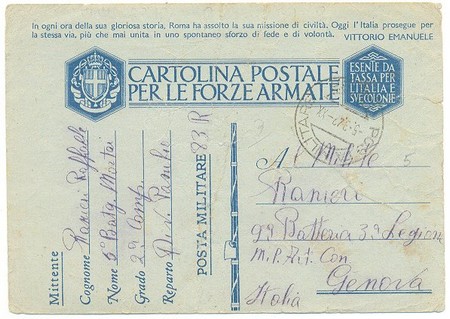 In ogni ora della sua gloriosa storia, Roma ha assolto la sua missione di civiltà. Oggi l'Italia prosegue per
la stessa via, più che mai unita in uno spontaneo sforzo di fede e di volontà. VITTORIO EMANUELE
CARTOLINA POSTALE
PER LE FORZE ARMATE
ESENTE DA
TASSA PER
L'ITALIA E
SVE COLONIE
Mittente
Cognome Ranieri Raffaele
Nome 5° Batg Mortai
Grado 2ª Comp.
Reparto Div.
POSTA MILITARE 83 R
Al Mil
Ranieri
9ª Batteria 3ª Legione
M.P. Art. Con
Genova
Italia